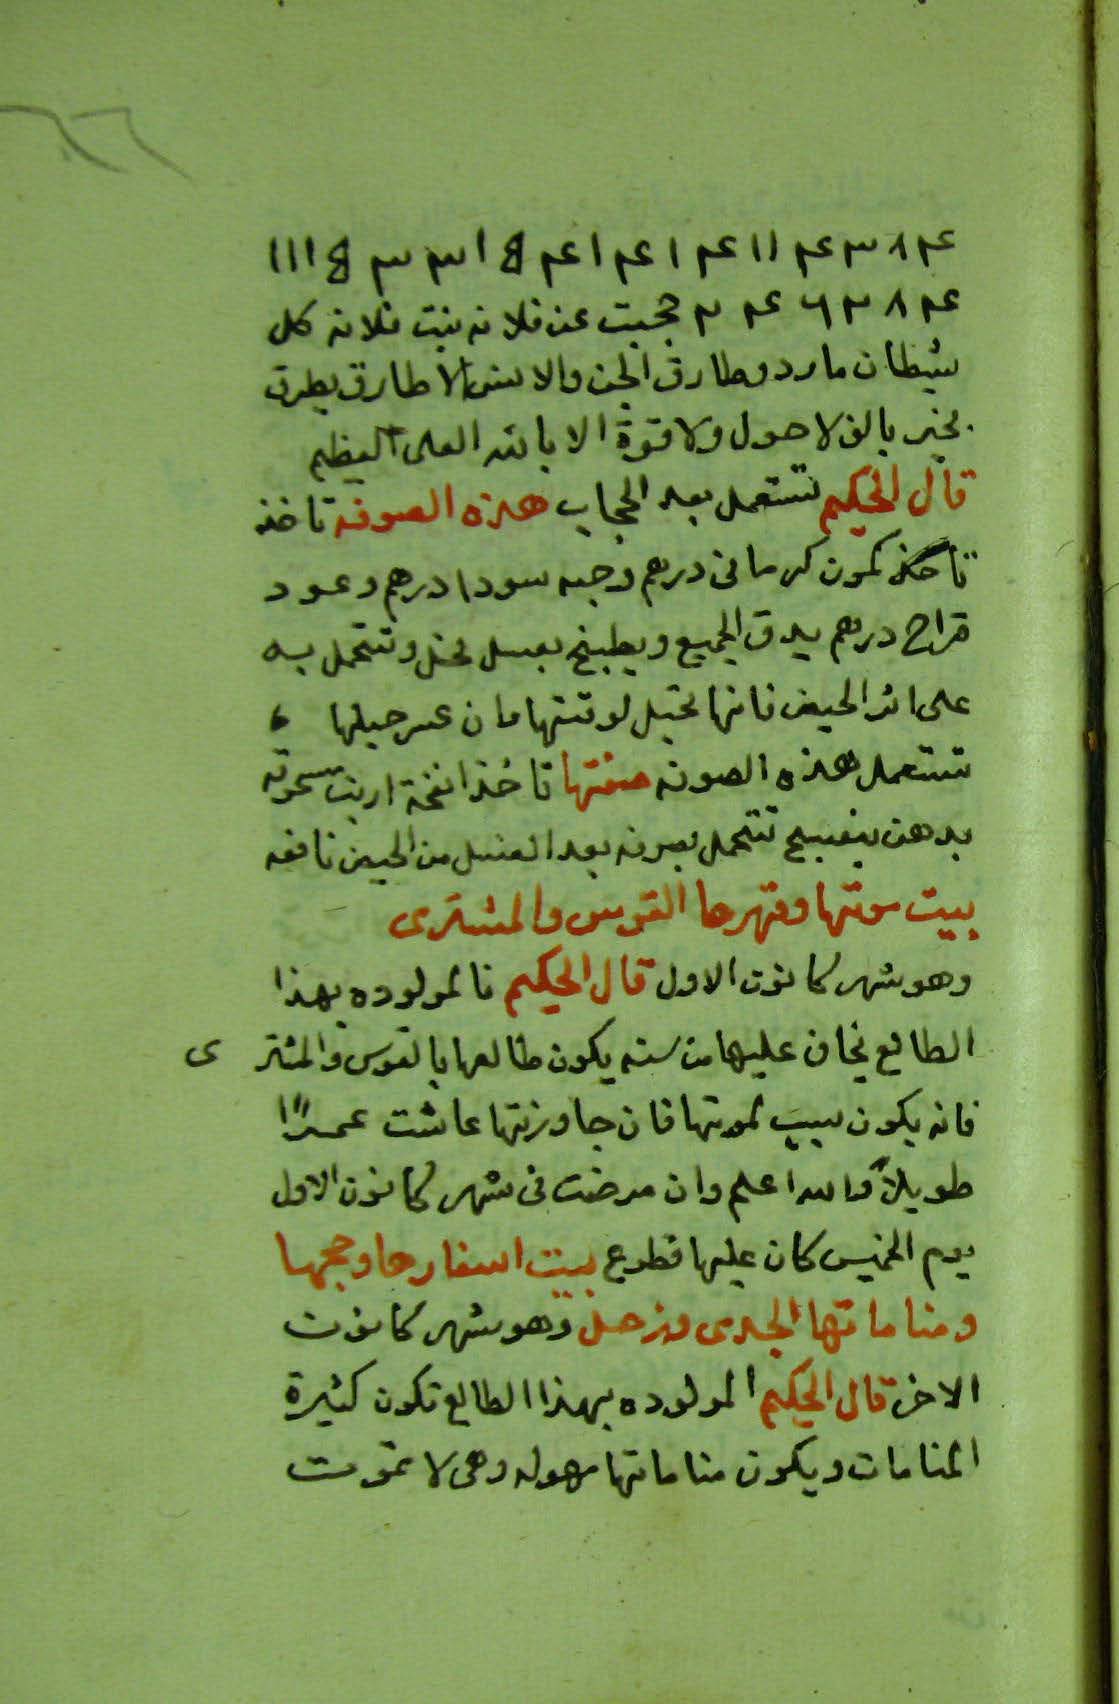 حجبت عن فلانه بنت فلانه كل
شيطان مارد وطارق الجن والانس الا طارق يطرق
بخير بالف لا حول ولا قوة الا بالله العلى العظيم
قال الحكيم تستعمل بعد الحجاب هذه الصوفه تاخذ
تاخذ كمون كرمانى درهم وحبه سودا درهم وعود
قراح درهم يدق الجميع ويطبخ بعسل نحل وتتحمل به
على اثر الحيض فانها تحبل لوقتها فان عسر حبلها
تستعمل هذه الصوفه صفتها تاخذ انفخة ارنب سحوقه
بدهن بنفسج تتحمل بصوفه بعد الغسل من الحيض نافعه
بيت موتها وقهرها القوس والمشترى
وهو شهر كانون الاول قال الحكيم فالمولوده بهذا
الطالع يخاف عليها من سنه يكون طالعها بالقوس والمشترى
فانه يكون سبب لموتها فان جاوزتها عاشت عمرًا
طويلاً والله اعلم وان مرضت فى شهر كانون الاول
يوم الخميس كان عليها قطوع بيت اسفارها وحججها
ومناماتها الجدى وزحل وهو شهر كانون
الاخر قال الحكيم المولوده بهذا الطالع تكون كثيرة
المنامات ويكون مناماتها مهوله وهى لا تموت